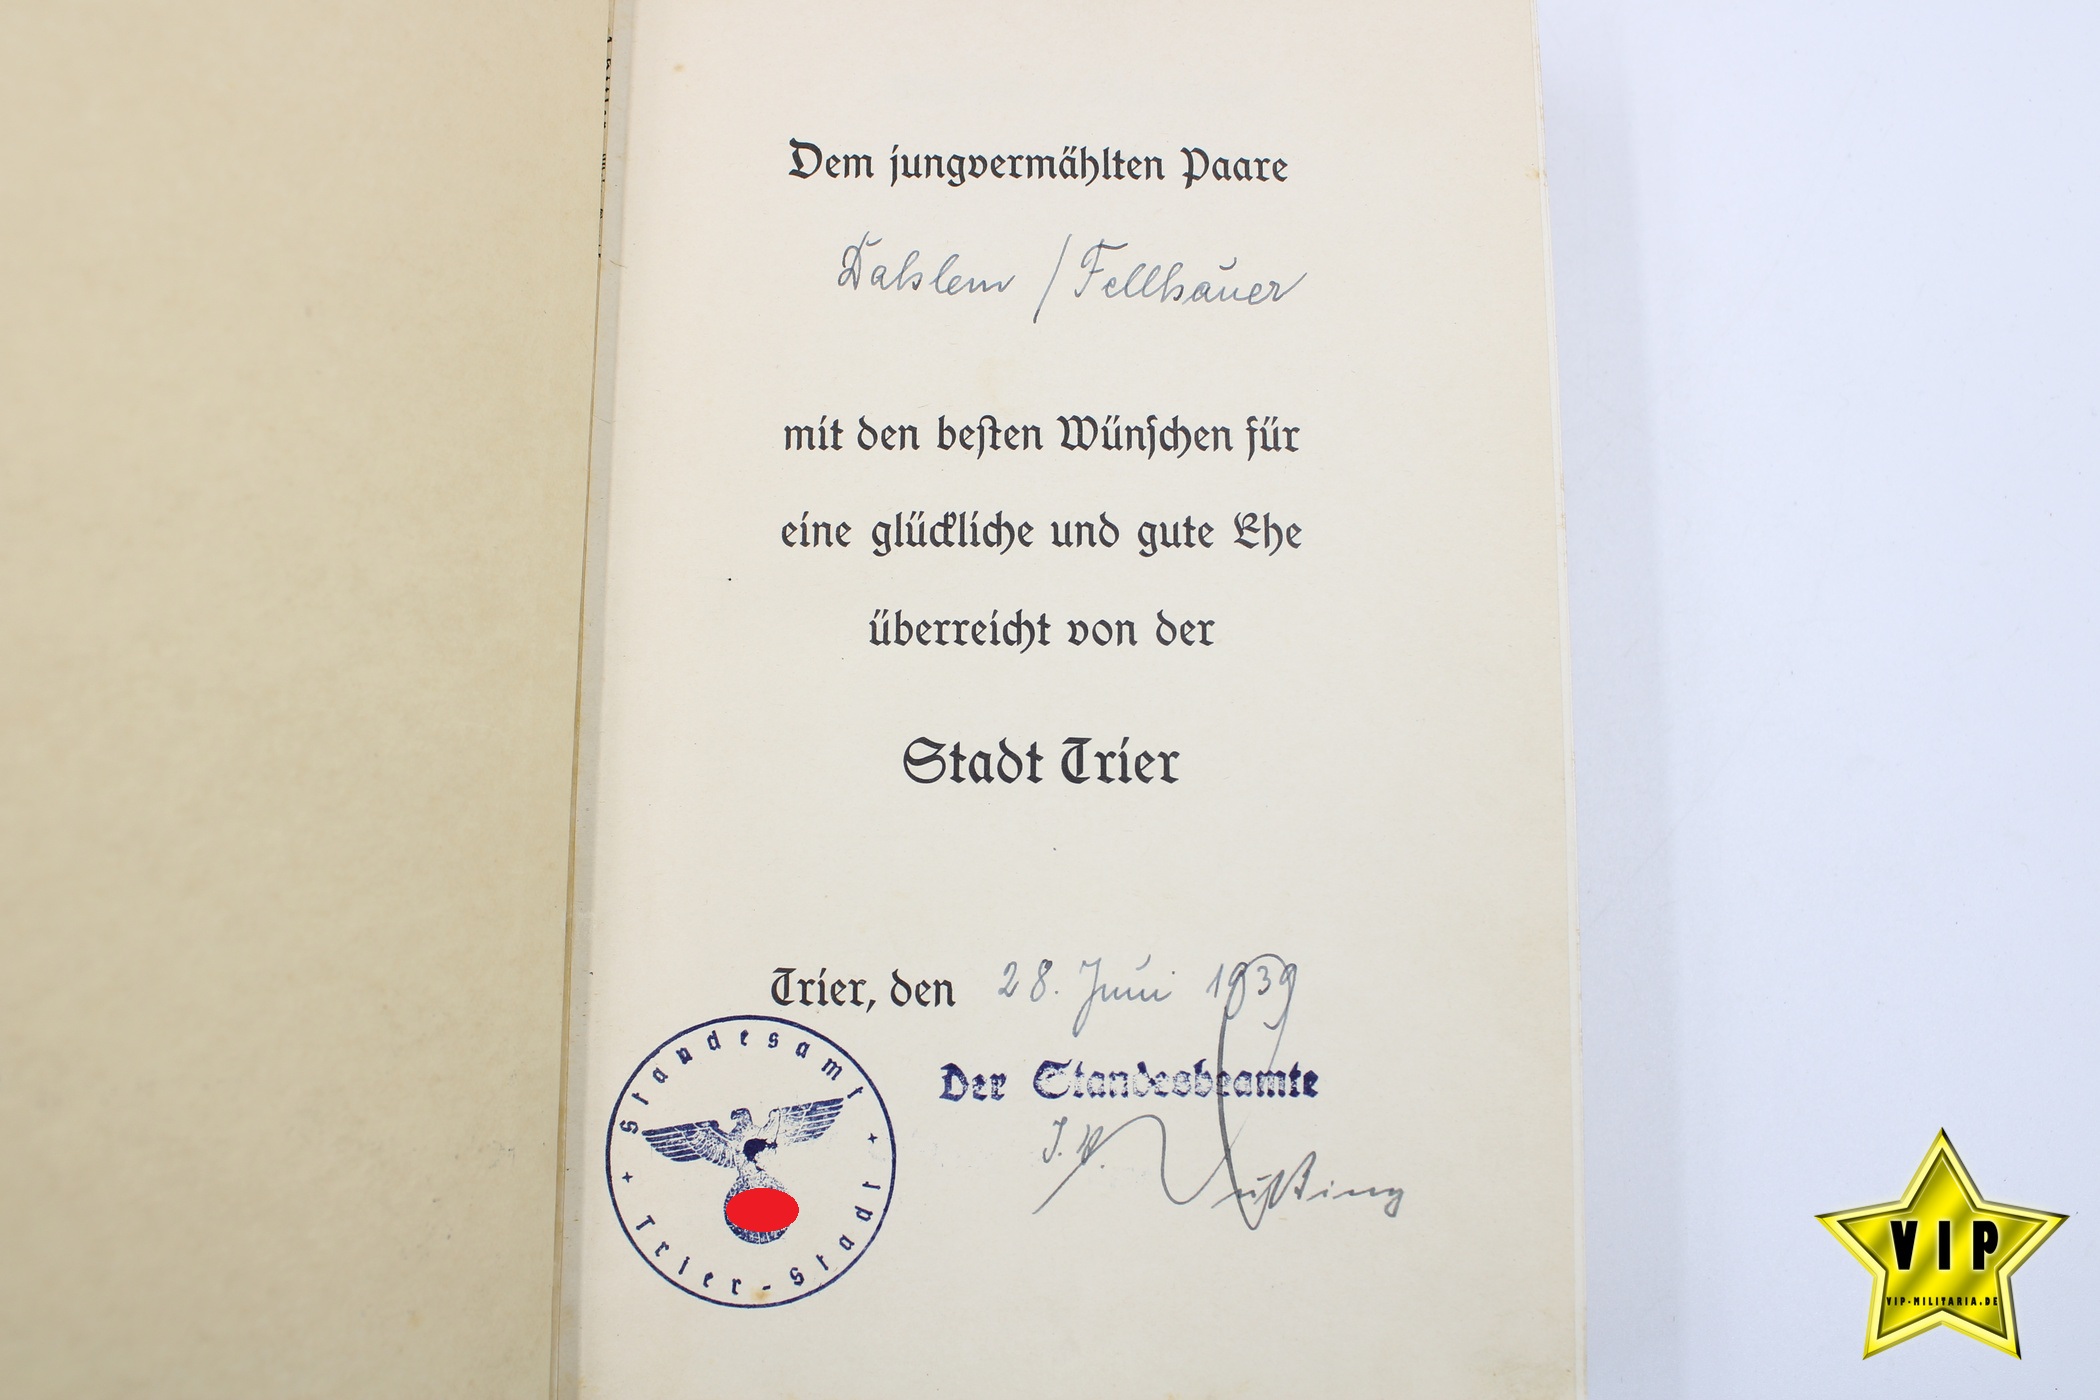 Dem jungvermählten Paare
Dahlem / Fellhauer
mit den besten Wünschen für
eine glückliche und gute Ehe
überreicht von der
Stadt Trier
Trier, den 28. Juni 1939
Der Standesbeamte
I.V.
Standesamt
Trier-Stadt
VIP
VIP-MILITARIA.DE